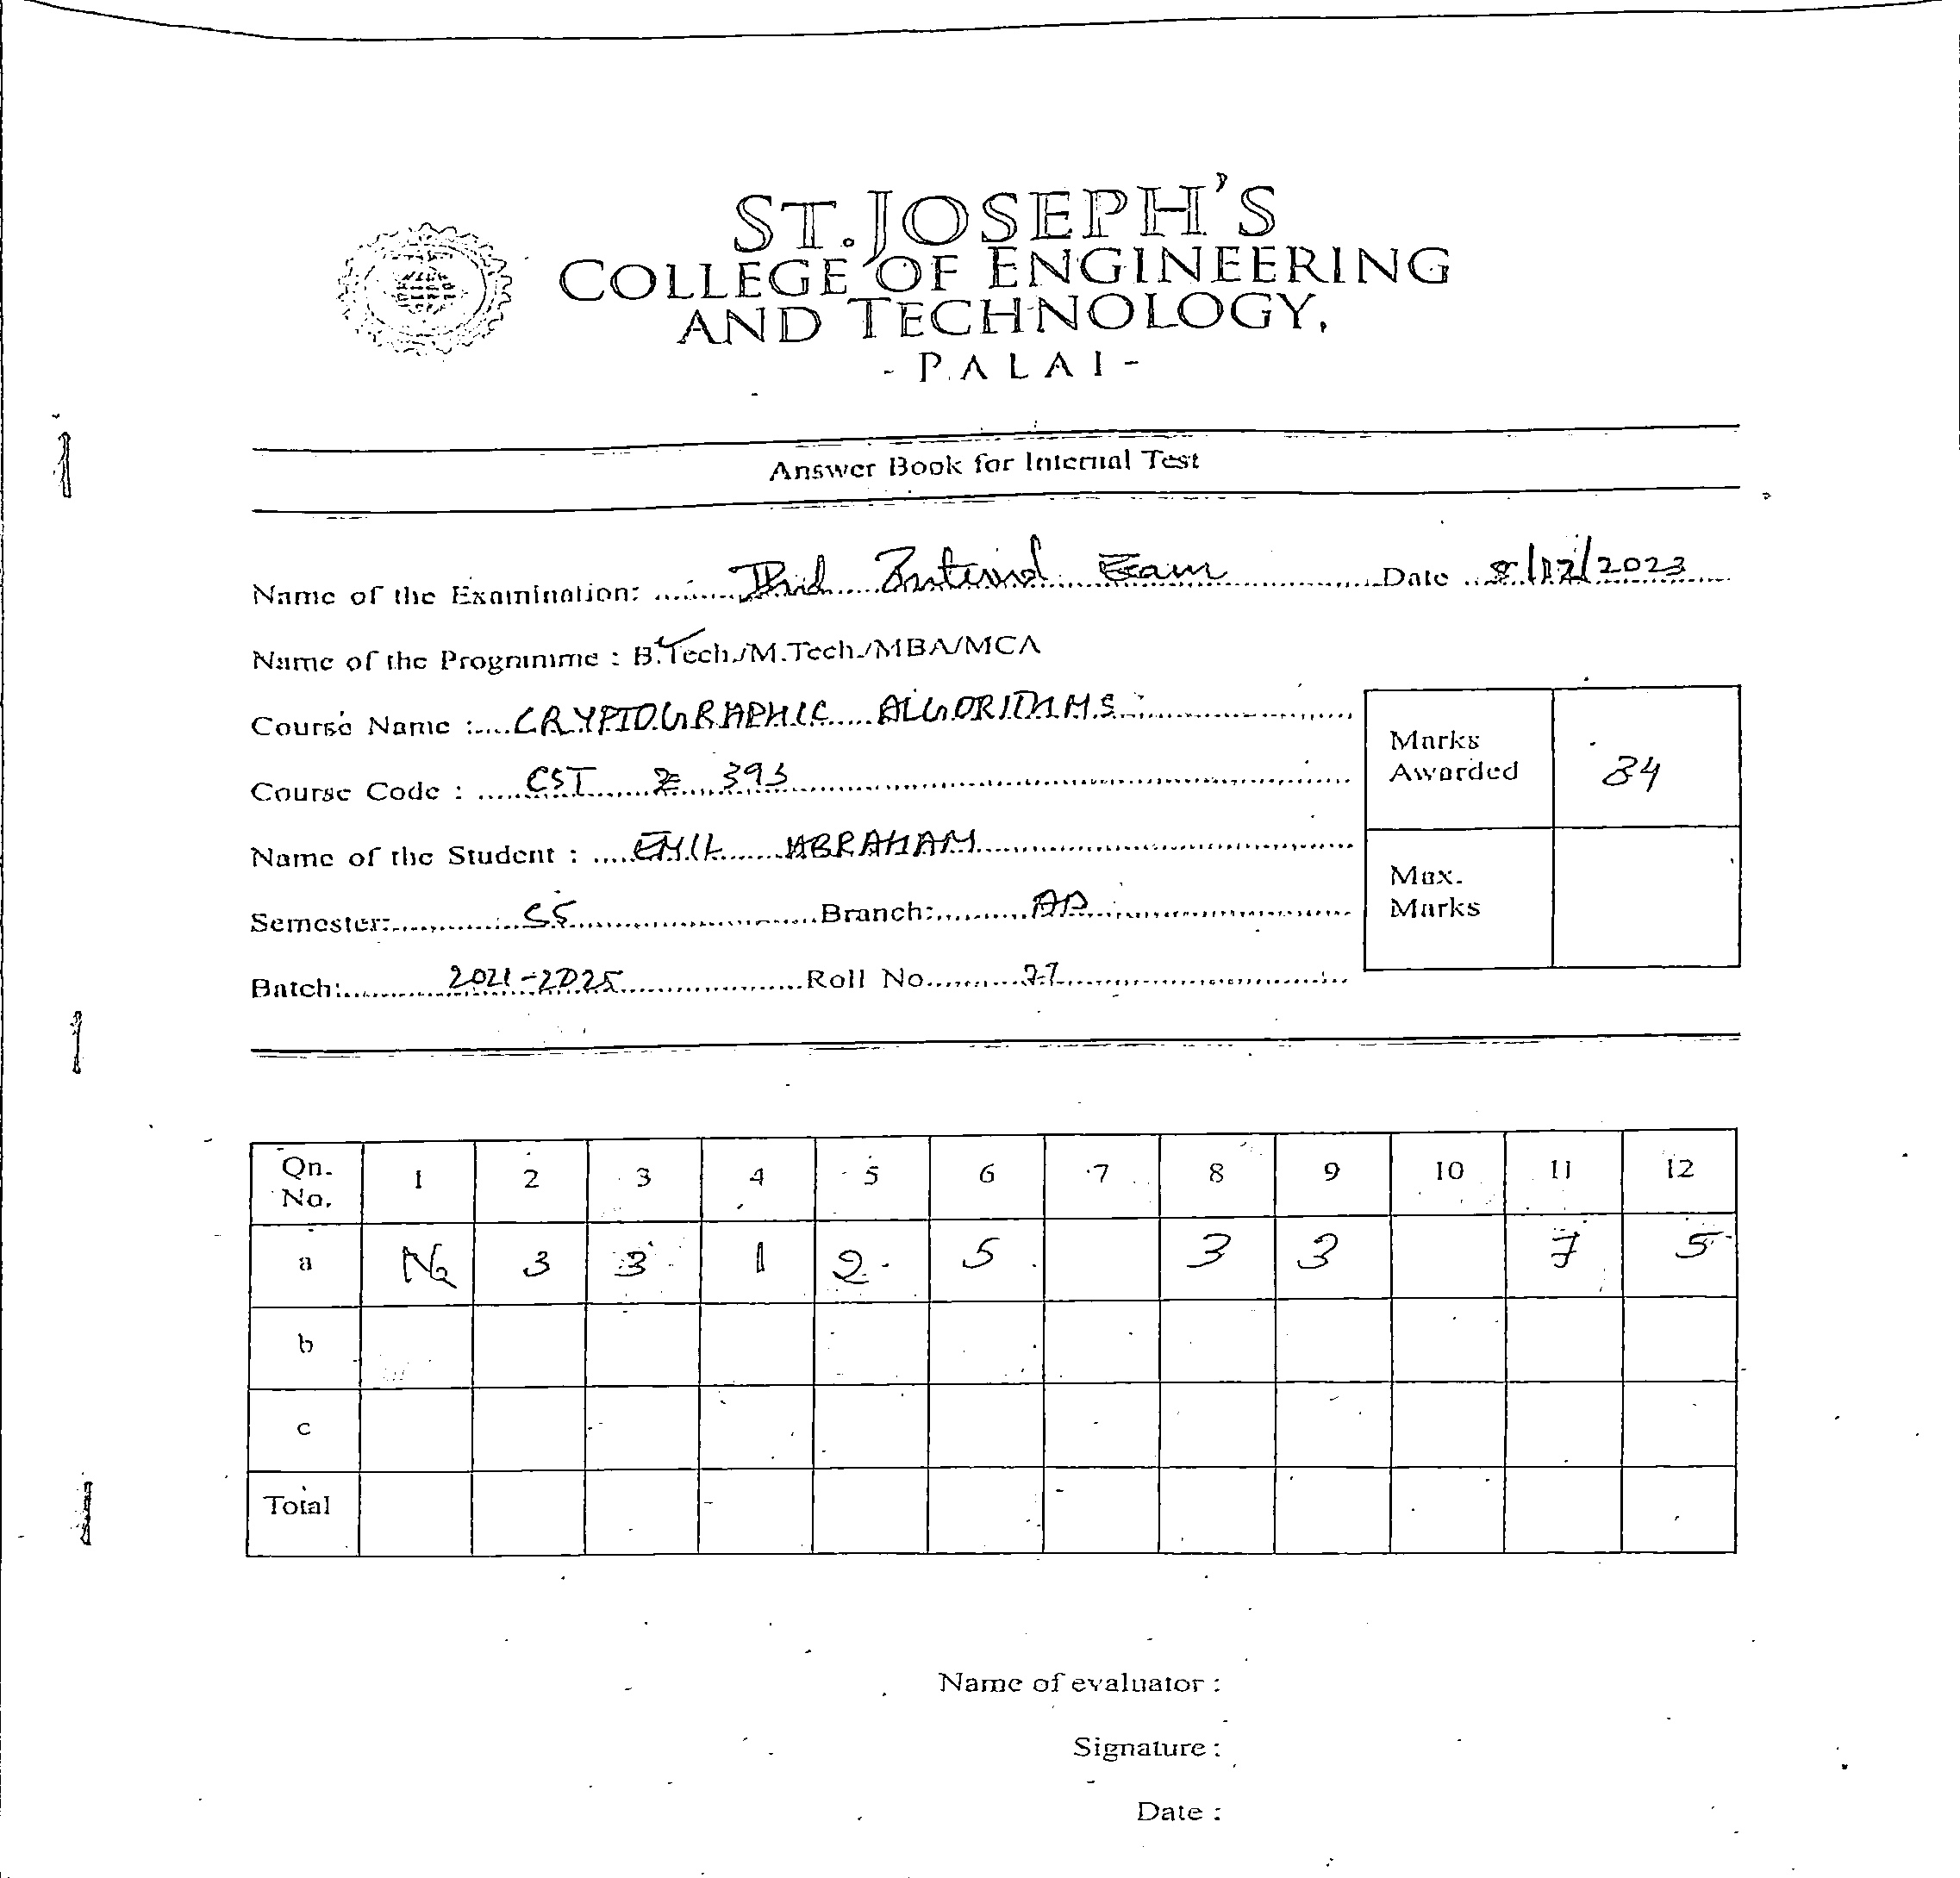 ST. JOSEPH'S
COLLEGE OF ENGINEERING
AND TECHNOLOGY,
- PALAI -
Answer Book for Internal Test
Name of the Examination: Internal Exam Date 8/12/2023
Name of the Programme : B.Tech./M.Tech./MBA/MCA
Course Name : CRYPTOGRAPHIC ALGORITHMS
Course Code : CST 393
Name of the Student : EMIL ABRAHAM
Semester: S5 Branch: AD
Batch: 2021-2025 Roll No. 27
Marks Awarded 34
Max. Marks
Qn. No. 1 2 3 4 5 6 7 8 9 10 11 12
a 3 3 1 2 5 3 3 7 5
b
c
Total
Name of evaluator :
Signature :
Date :